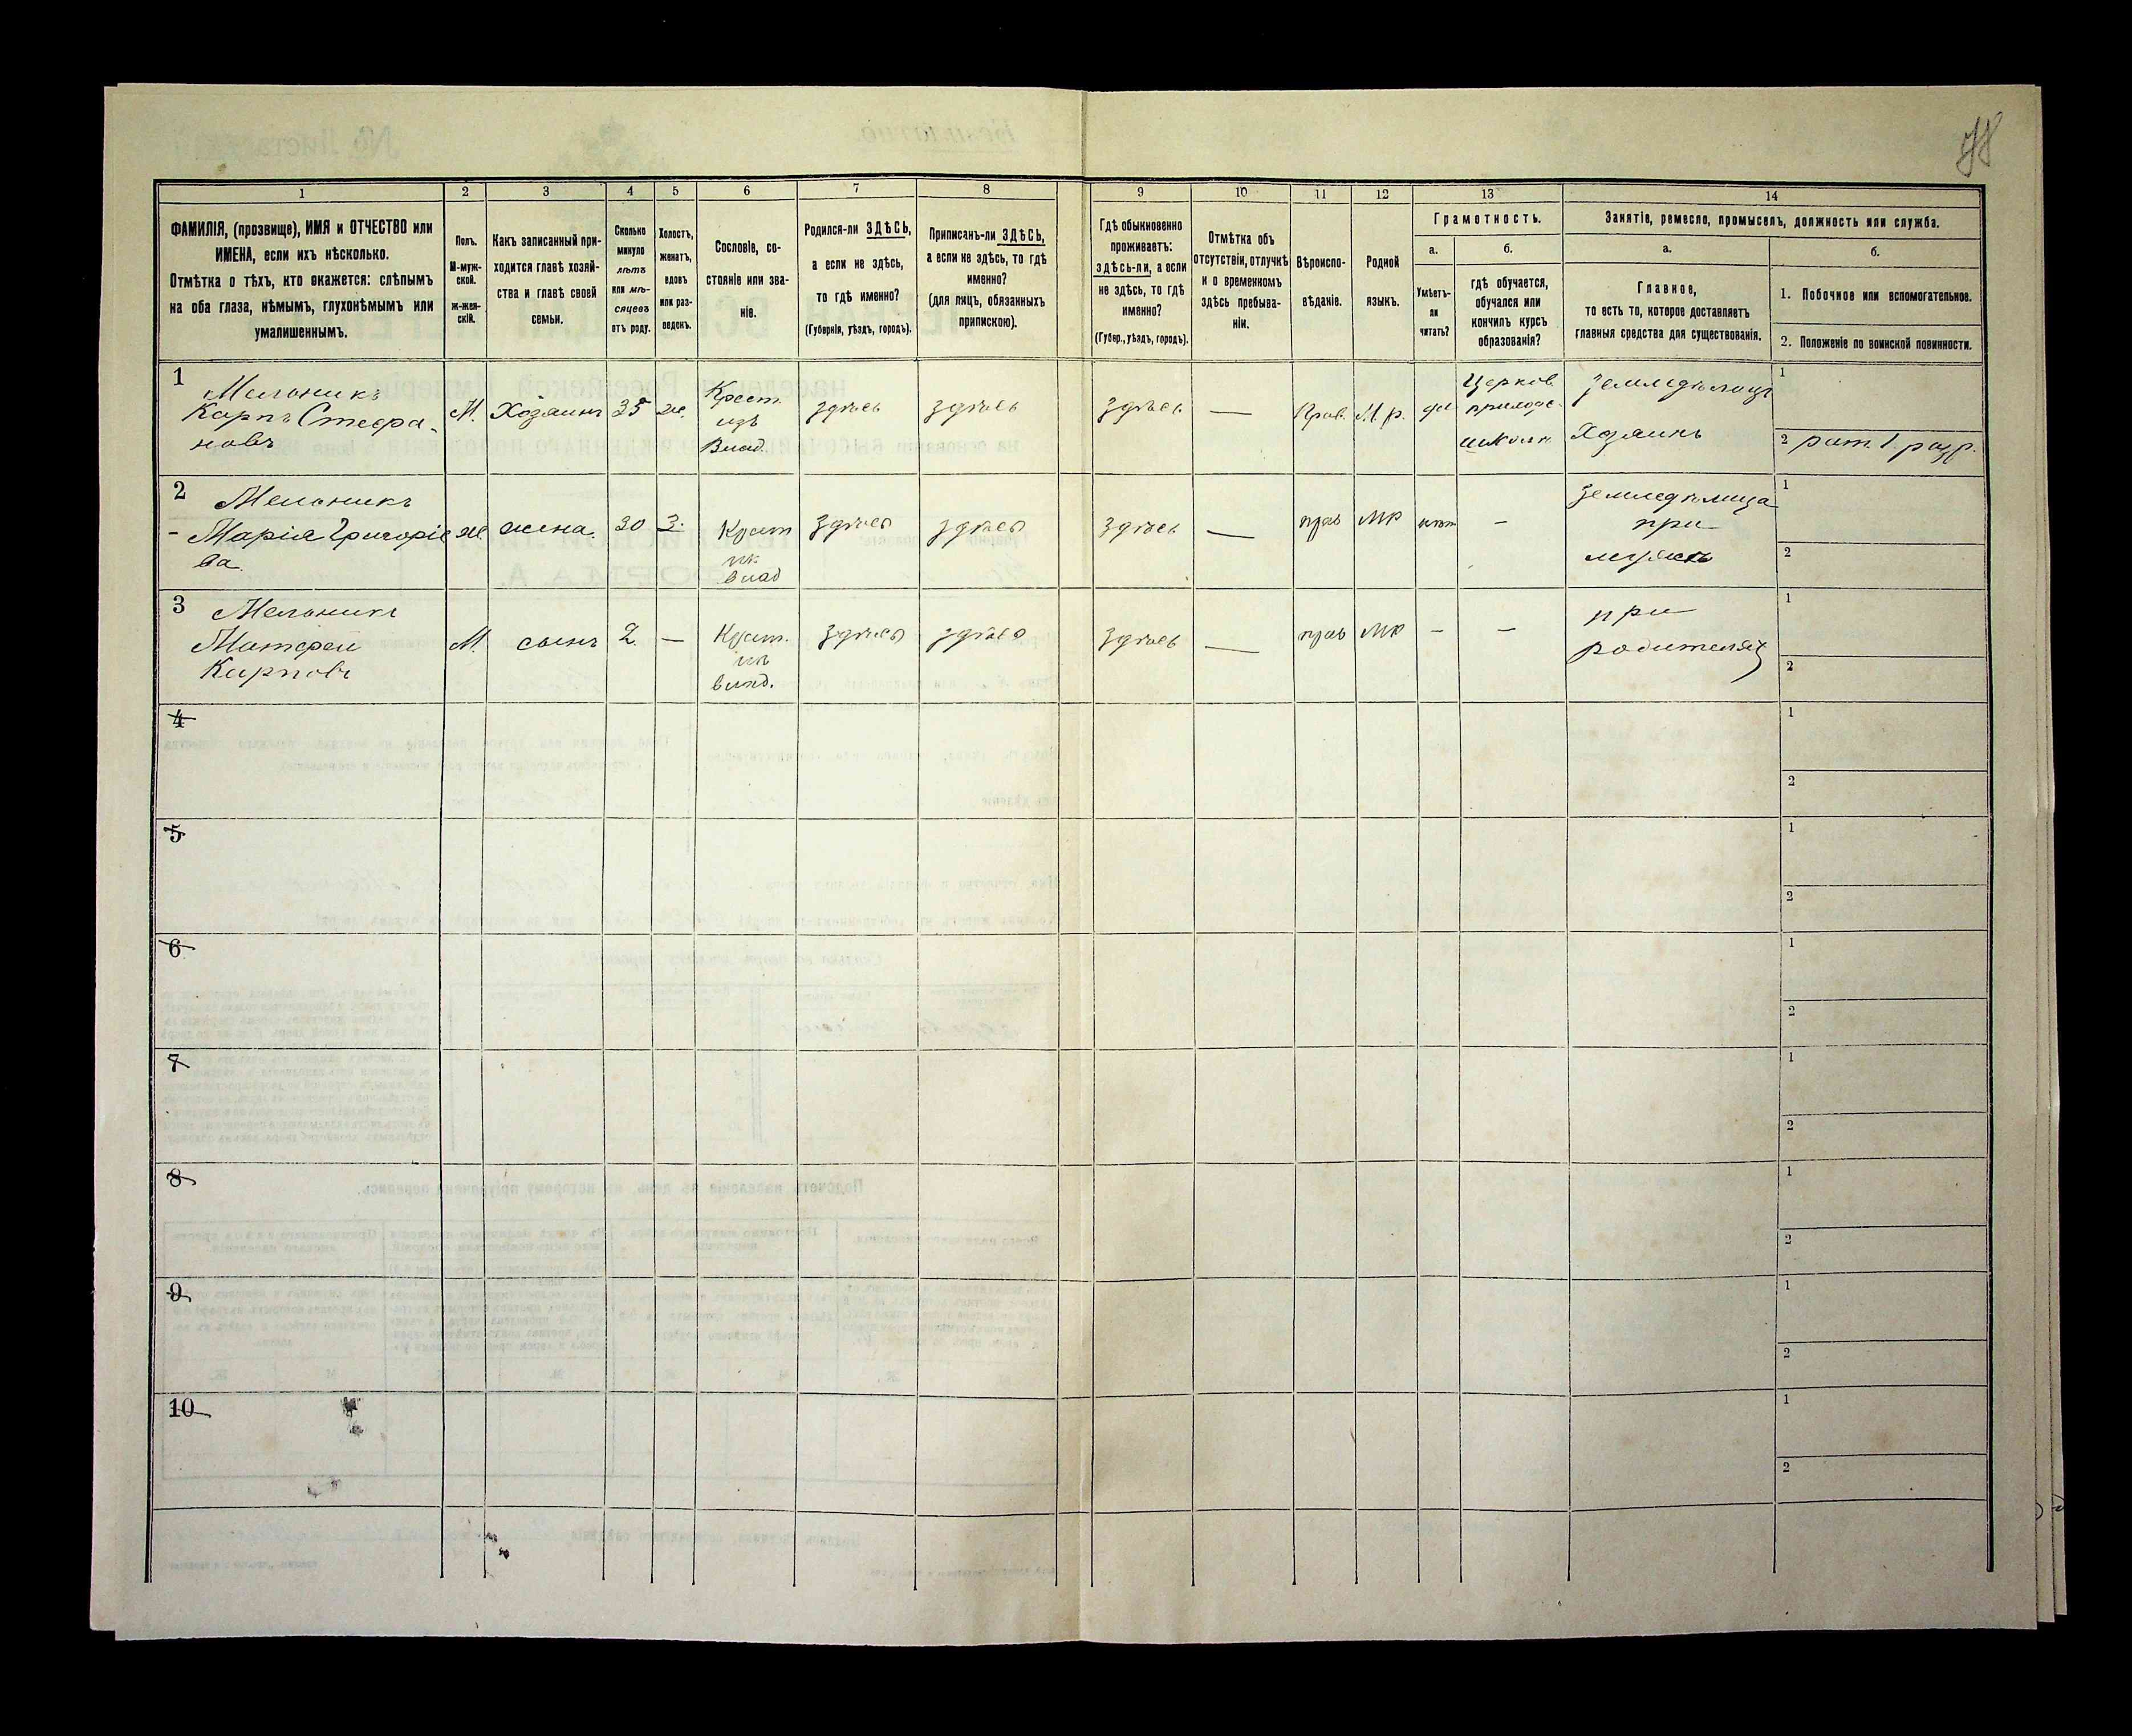 1 2 3 4 5 6 7 8 9 10 11 12 13 14
ФАМИЛІЯ, (прозвище), ИМЯ и ОТЧЕСТВО или
ИМЕНА, если ихъ нѣсколько.
Отмѣтка о тѣхъ, кто окажется: слѣпымъ
на оба глаза, нѣмымъ, глухонѣмымъ или
умалишеннымъ.
Полъ.
М-муж-
ской.
ж-жен-
скій.
Какъ записанный при-
ходится главѣ хозяй-
ства и главѣ своей
семьи.
Сколько
минуло
лѣтъ
или мѣ-
сяцевъ
отъ роду.
Холостъ,
женатъ,
вдовъ
или раз-
веденъ.
Сословіе, со-
стояніе или зва-
ніе.
Родился-ли ЗДѢСЬ,
а если не здѣсь,
то гдѣ именно?
(Губернія, уѣздъ, городъ).
Приписанъ-ли ЗДѢСЬ,
а если не здѣсь, то гдѣ
именно?
(для лицъ, обязанныхъ
припискою).
Гдѣ обыкновенно
проживаетъ:
здѣсь-ли, а если
не здѣсь, то гдѣ
именно?
(Губер., уѣздъ, городъ).
Отмѣтка объ
отсутствіи, отлучкѣ
и о временномъ
здѣсь пребыва-
ніи.
Вѣроиспо-
вѣданіе.
Родной
языкъ.
Грамотность.
а.
Умѣетъ-
ли
читать?
б.
гдѣ обучается,
обучался или
кончилъ курсъ
образованія?
Занятіе, ремесло, промыселъ, должность или служба.
а.
Главное,
то есть то, которое доставляетъ
главныя средства для существованія.
б.
1. Побочное или вспомогательное.
2. Положеніе по воинской повинности.
1
Мельникъ
Карпъ Стефа-
новъ
М.
Хозяинъ
35
ж.
Крест.
изъ
Влад.
здѣсь
здѣсь
здѣсь
—
Прав.
М. р.
да
Церков.
приходс.
школа
Земледѣлецъ
Хозяинъ
1
2 рат. 1 разр.
2
Мельникъ
Марія Григоріе
ва
ж
жена.
30
З.
Крест
из
влад
здѣсь
здѣсь
здѣсь
—
прав
мр
нѣт
—
Земледѣлица
при
мужѣ
1
2
3
Мельникъ
Матфей
Карповъ
М.
сынъ
2
—
Крест.
из
влад.
здѣсь
здѣсь
здѣсь
—
прав
мр
—
—
при
родителях
1
2
4
1
2
5
1
2
6
1
2
7
1
2
8
1
2
9
1
2
10
1
2